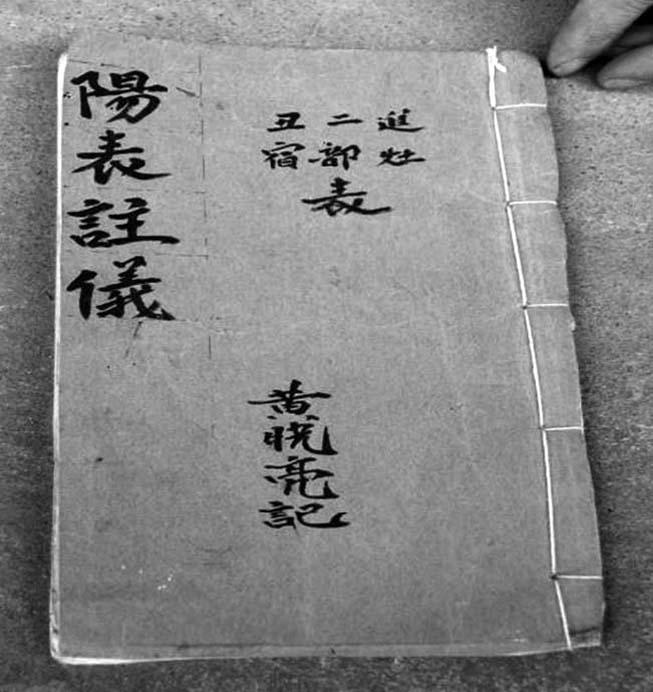 進灶
二部
丑宿
表
黄晓亮記
陽表註儀